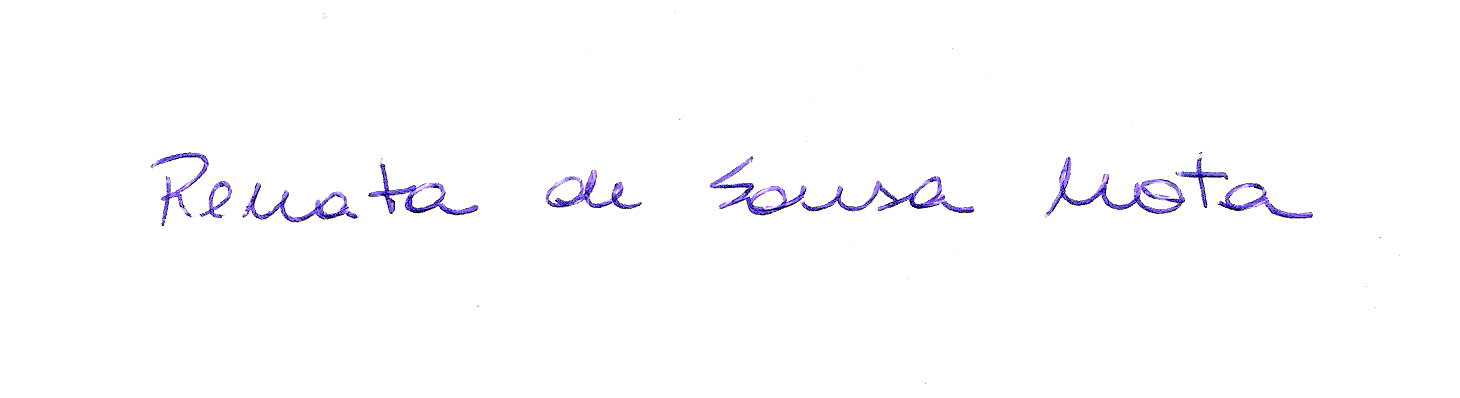 Renata de Sousa Mota